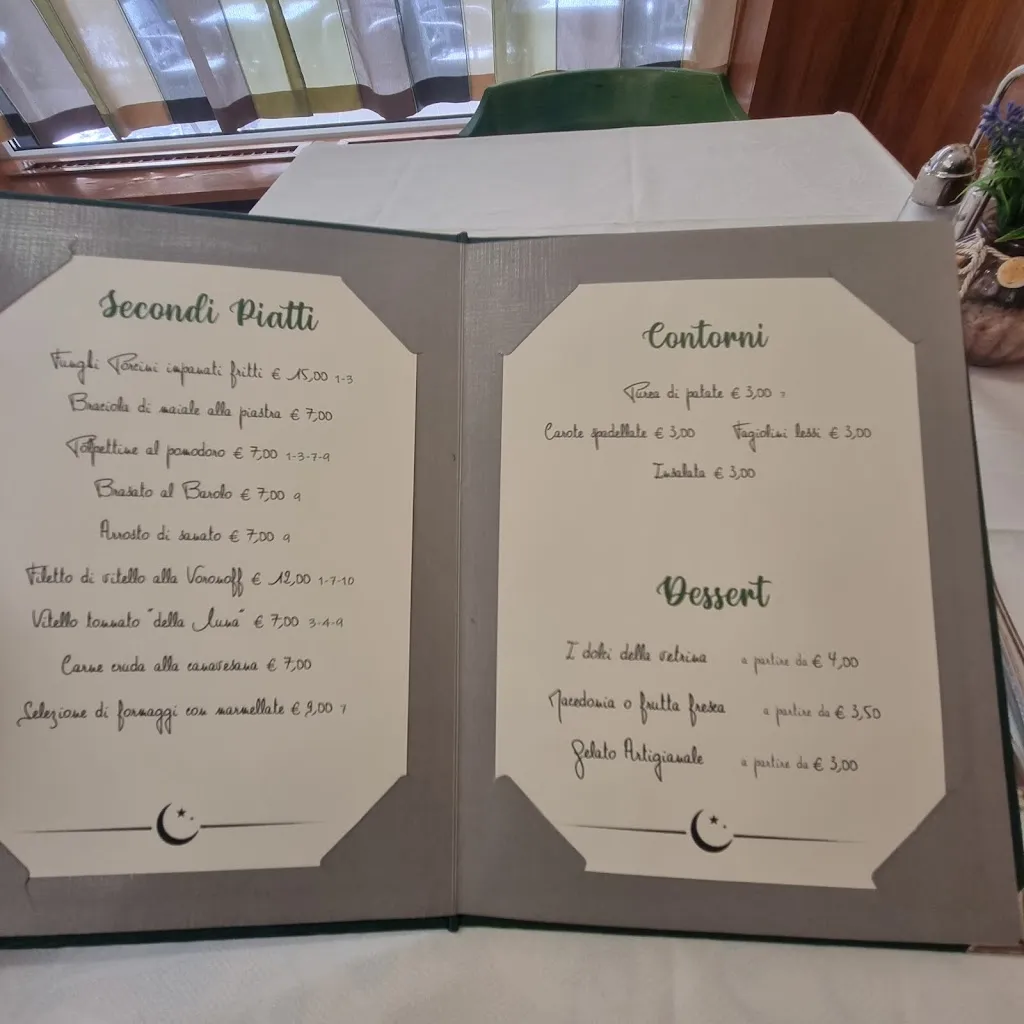 Secondi Piatti
Funghi Porcini impanati fritti € 15,00 1-3
Braciola di maiale alla piastra € 7,00
Polpettine al pomodoro € 7,00 1-3-7-9
Brasato al Barolo € 7,00 9
Arrosto di sanato € 7,00 9
Filetto di vitello alla Voronoff € 12,00 1-7-10
Vitello tonnato "della Luna" € 7,00 3-4-9
Carne cruda alla canavesana € 7,00
Selezione di formaggi con marmellate € 9,00 7
Contorni
Purea di patate € 3,00 7
Carote spadellate € 3,00 Fagiolini lessi € 3,00
Insalata € 3,00
Dessert
I dolci della vetrina a partire da € 4,00
Macedonia o frutta fresca a partire da € 3,50
Gelato Artigianale a partire da € 3,00